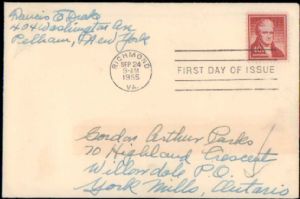 Francis E Drake
404 Washington Ave
Pelham, New York
RICHMOND
SEP 24
9-AM
1955
VA.
FIRST DAY OF ISSUE
Gordon Arthur Parks
70 Highland Crescent
Willowdale P.O.
York Mills, Ontario